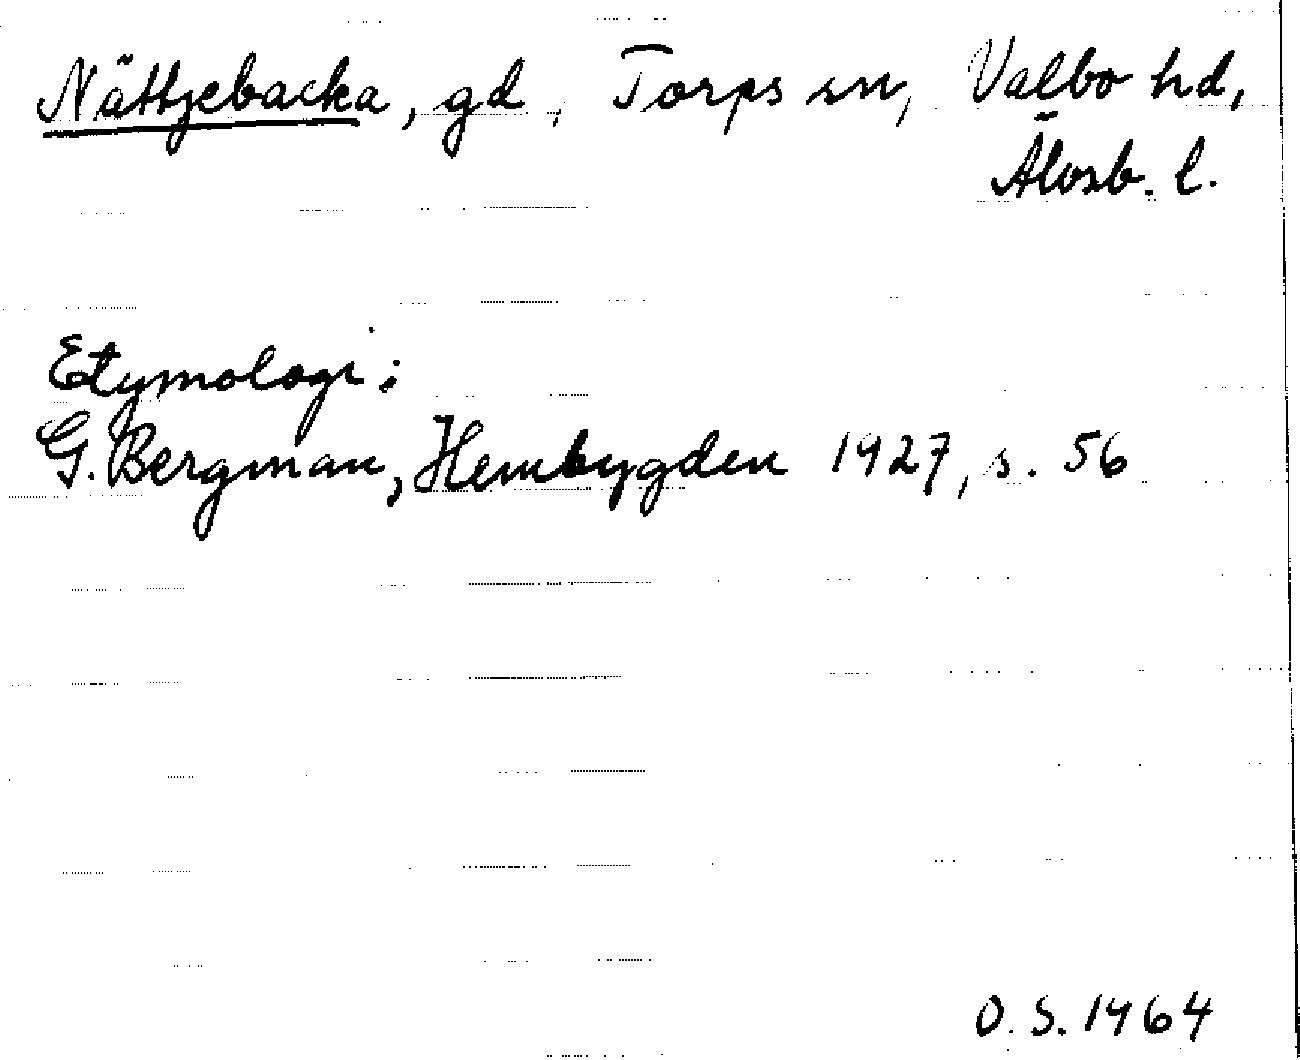 Nättjebacka, gd, Torps sn, Valbo hd,
Älvsb. l.
Etymologi:
G. Bergman, Hembygden 1927, s. 56
O. S. 1964